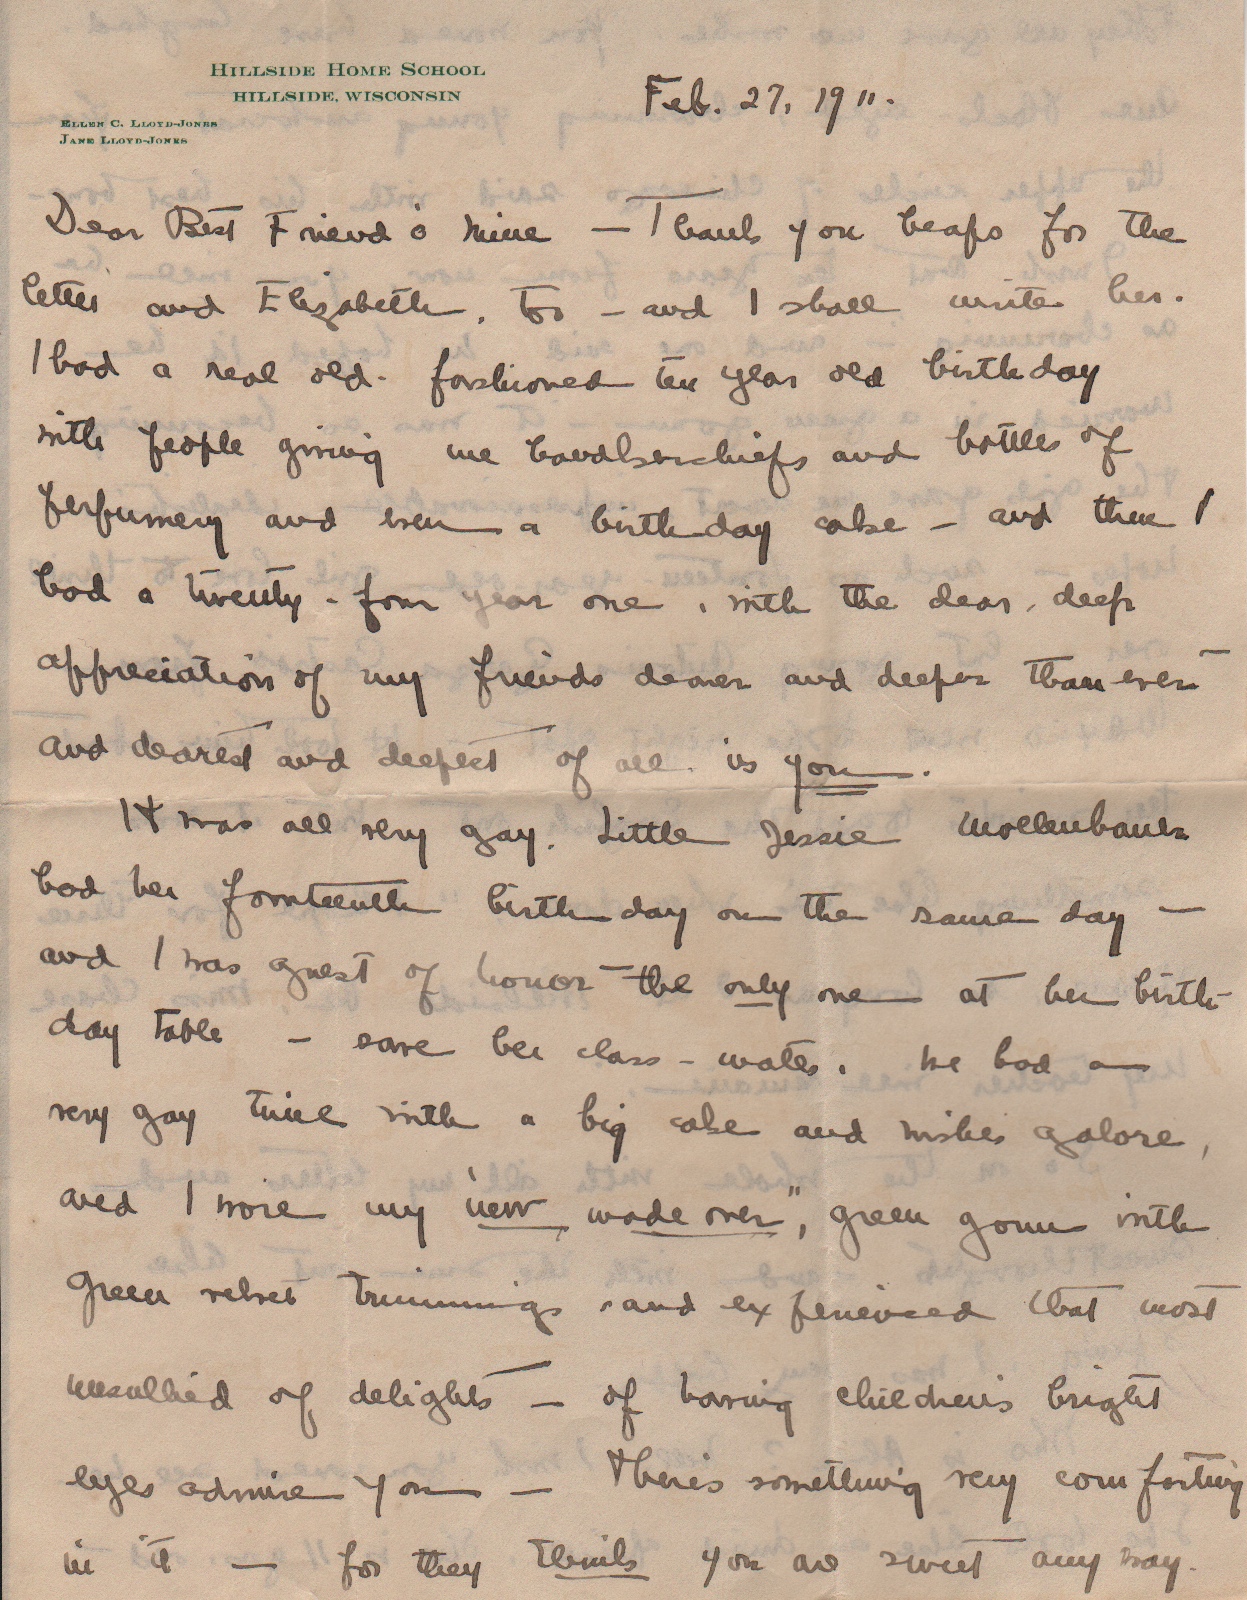 HILLSIDE HOME SCHOOL
HILLSIDE, WISCONSIN
ELLEN C. LLOYD-JONES
JANE LLOYD-JONES
Feb. 27, 1911.
Dear Best Friend o' Mine — Thank you heaps for the
letter and Elizabeth, too — and I shall write her.
I had a real old-fashioned ten year old birthday
with people giving me handkerchiefs and bottles of
perfumery and even a birthday cake — and then I
had a twenty-four year one, with the dear, deep
appreciation of my friends dearer and deeper than ever —
and dearest and deepest of all is you.
It was all very gay. Little Jessie
had her fourteenth birthday on the same day —
and I was guest of honor — the only one at her birth-
day table — save her class-mates. We had a
very gay time with a big cake and wishes galore,
and I wore my "new made over", green gown with
green velvet trimmings and experienced that most
unsullied of delights — of having children's bright
eyes admire you — there's something very comforting
in it — for they think you are sweet any way.